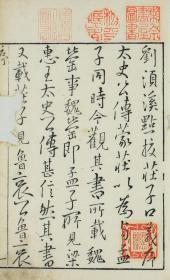 劉湏溪點校莊子口義序
太史公傳蒙莊以為孟
子同時今觀其書所載魏
罃事魏罃即孟子所見梁
惠王太史公傳甚信然其書
又載莊子見魯哀公魯哀